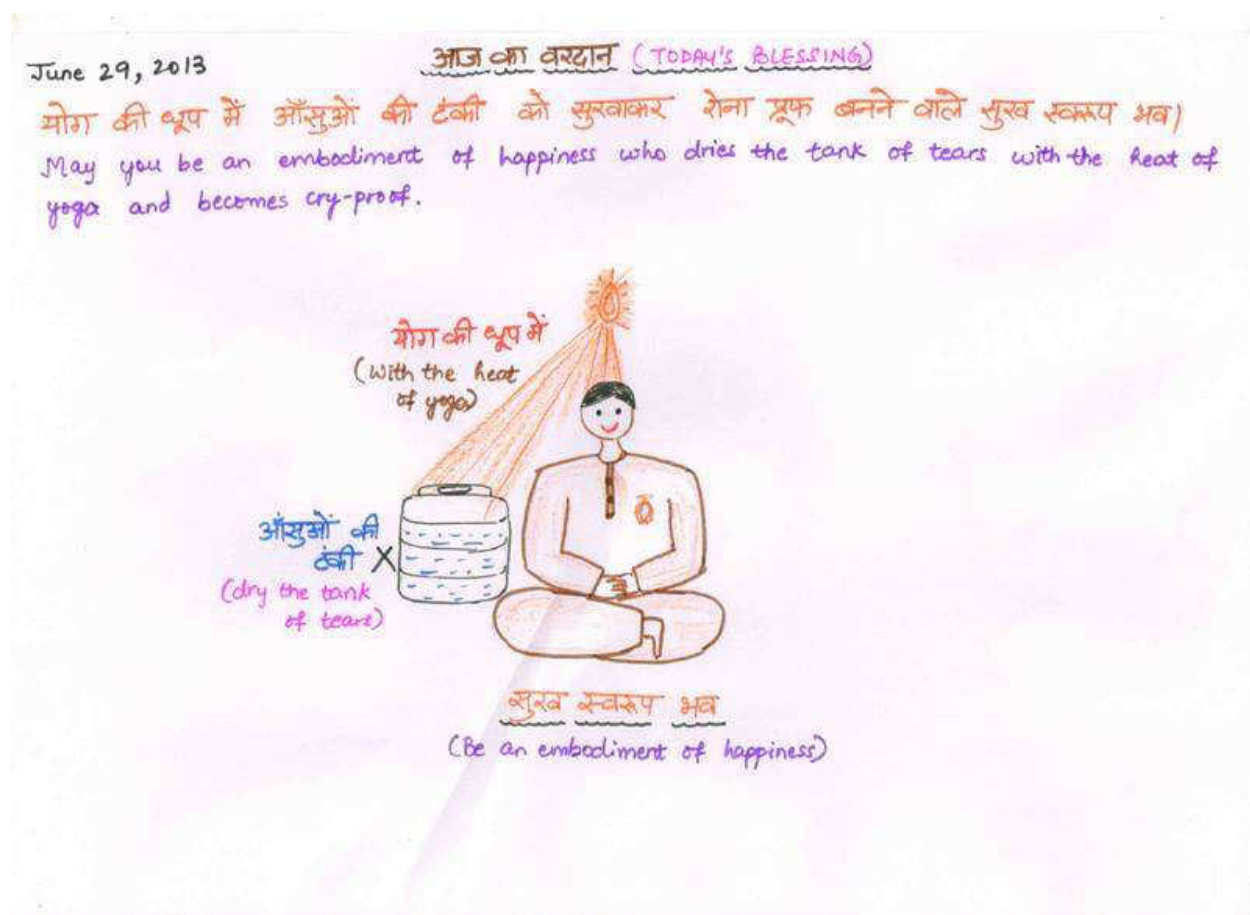 June 29, 2013
आज का वरदान (TODAY'S BLESSING)
योग की धूप में आँसुओं की टंकी को सुखाकर रोना प्रूफ बनने वाले सुख स्वरूप भव।
May you be an embodiment of happiness who dries the tank of tears with the heat of
yoga and becomes cry-proof.
योग की धूप में
(with the heat
of yoga)
आँसुओं की
टंकी X
(dry the tank
of tears)
सुख स्वरूप भव
(Be an embodiment of happiness)